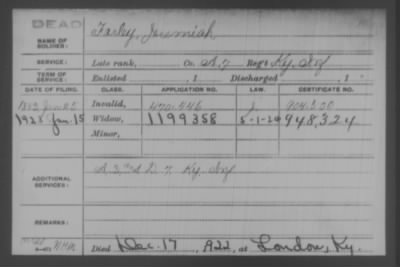 DEAD
NAME OF SOLDIER: Farley, Jeremiah
SERVICE: Late rank, Co. A. 7 Reg't Ky. Inf
TERM OF SERVICE: Enlisted , 1 Discharged , 1
DATE OF FILING. CLASS. APPLICATION NO. LAW. CERTIFICATE NO.
Invalid, 470.546
1923 Jan. 15 Widow, 1199358 5-1-20 948,324
Minor,
ADDITIONAL SERVICES: Ky. Inf
REMARKS:
Died Dec. 17, 1922, at London, Ky.